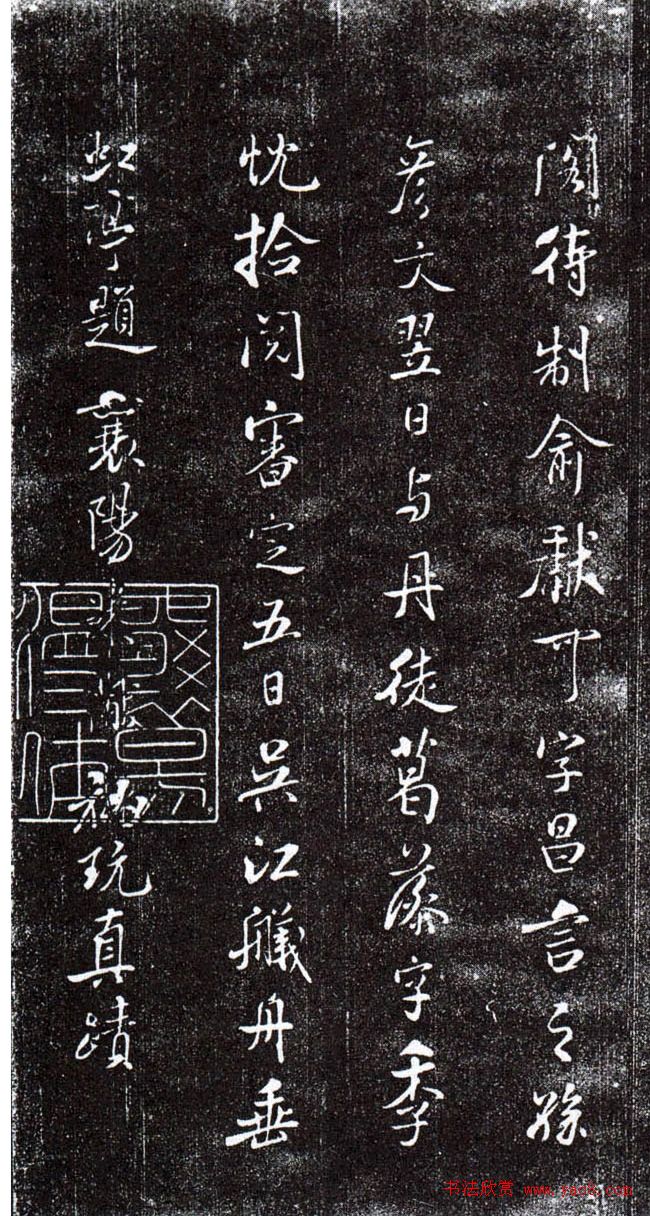 閣待制俞獻可字昌言之孫
彦文翌日与丹徒葛藻字季
忱拾閲審定五日吳江艤舟垂
虹亭題襄陽秘玩真蹟
书法欣赏 www.yac8.com